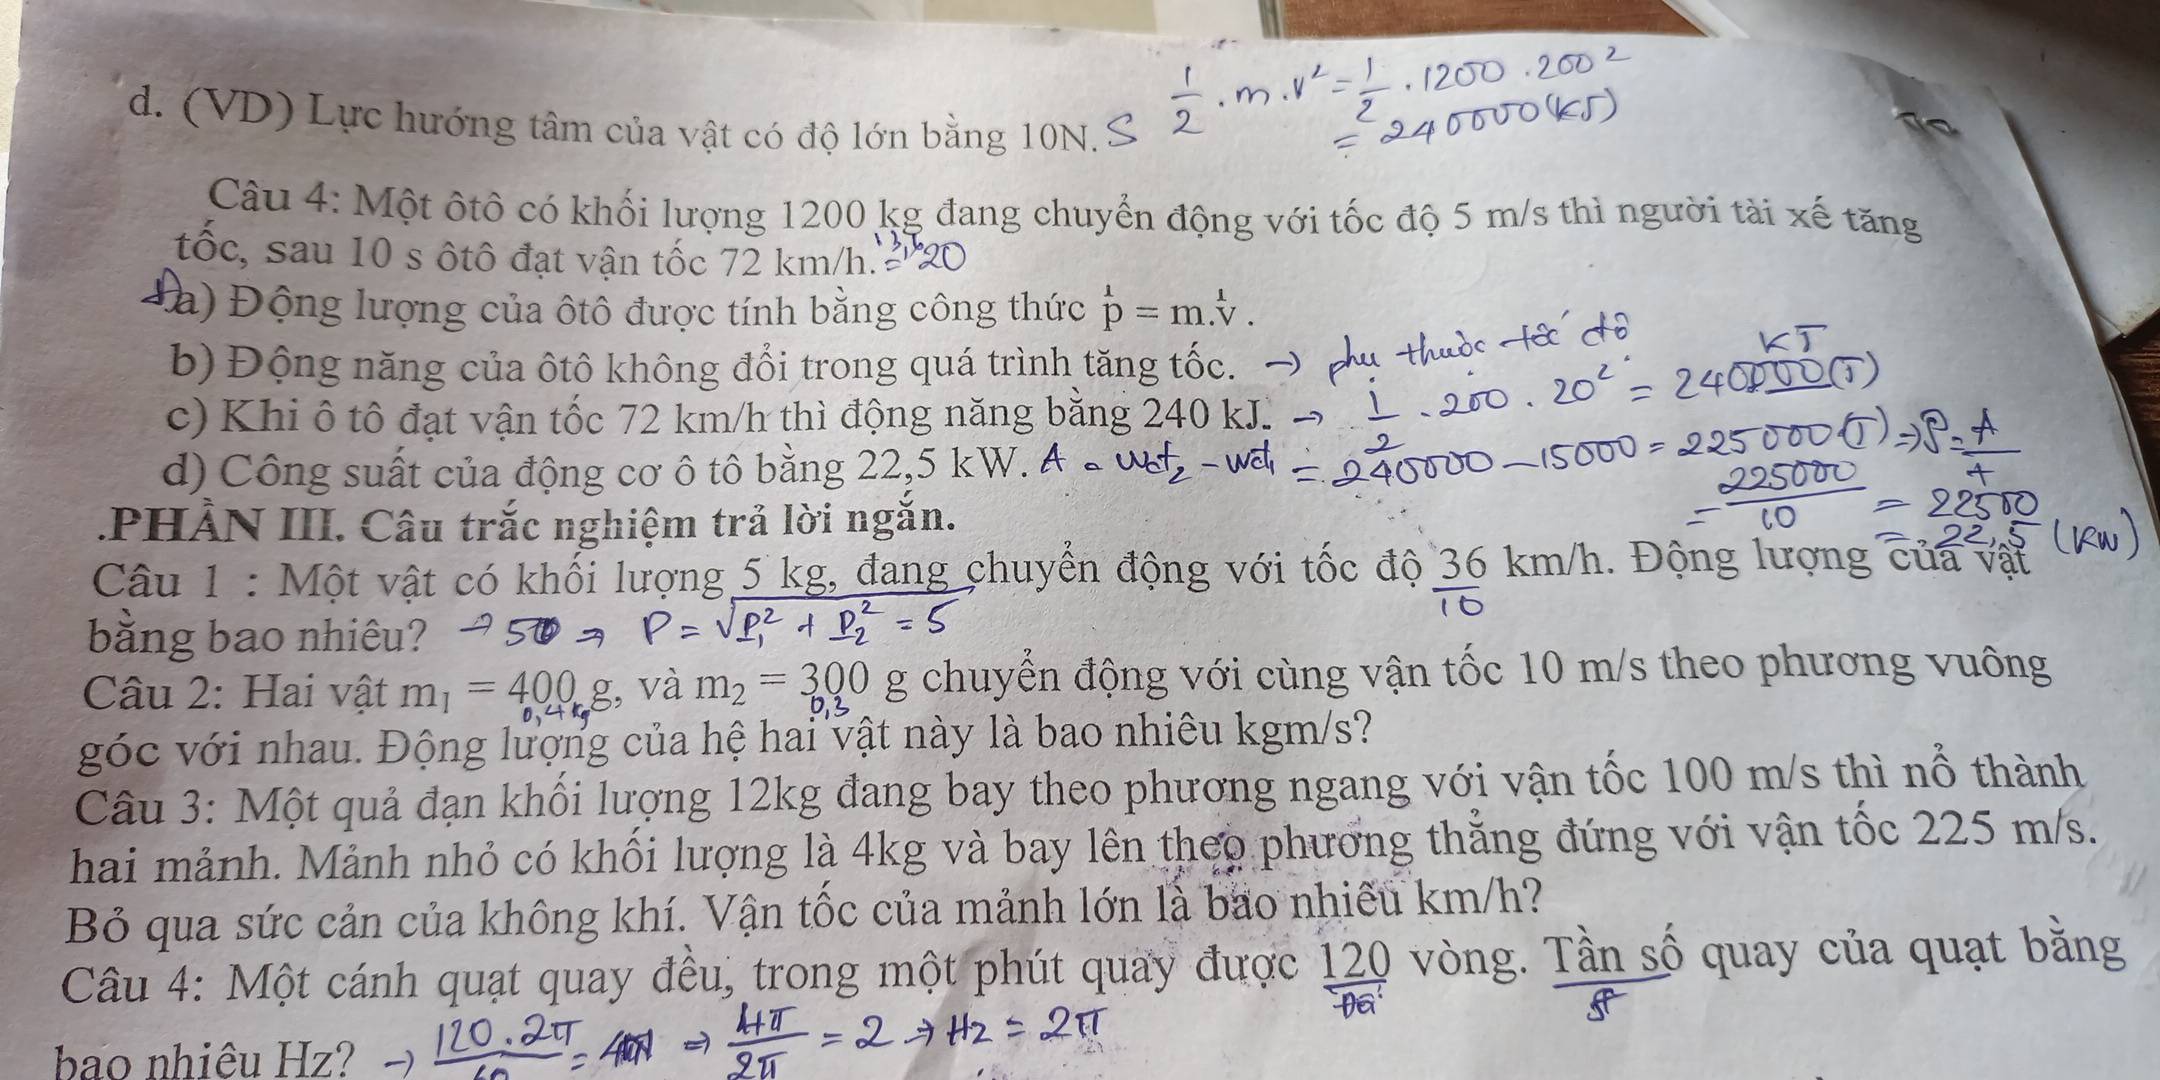 d. (VD) Lực hướng tâm của vật có độ lớn bằng 10N. S
1/2 . m . v² = 1/2 . 1200 . 200²
= 240000 (KJ)
Câu 4: Một ôtô có khối lượng 1200 kg đang chuyển động với tốc độ 5 m/s thì người tài xế tăng
tốc, sau 10 s ôtô đạt vận tốc 72 km/h. = 20
a) Động lượng của ôtô được tính bằng công thức p = m.v .
b) Động năng của ôtô không đổi trong quá trình tăng tốc. → phụ thuộc tốc độ
c) Khi ô tô đạt vận tốc 72 km/h thì động năng bằng 240 kJ. → 1/2 . 200 . 20² = 240000 (J) KJ
d) Công suất của động cơ ô tô bằng 22,5 kW. A = Wđ₂ - Wđ₁ = 240000 - 15000 = 225000 (J) ⇒ P = A/t
= 225000/10 = 22500
= 22,5 (KW)
.PHẦN III. Câu trắc nghiệm trả lời ngắn.
Câu 1 : Một vật có khối lượng 5 kg, đang chuyển động với tốc độ 36 km/h. Động lượng của vật
10
bằng bao nhiêu? → 50 ⇒ P = √P₁² + P₂² = 5
Câu 2: Hai vật m₁ = 400 g, và m₂ = 300 g chuyển động với cùng vận tốc 10 m/s theo phương vuông
0,4 kg 0,3
góc với nhau. Động lượng của hệ hai vật này là bao nhiêu kgm/s?
Câu 3: Một quả đạn khối lượng 12kg đang bay theo phương ngang với vận tốc 100 m/s thì nổ thành
hai mảnh. Mảnh nhỏ có khối lượng là 4kg và bay lên theo phương thẳng đứng với vận tốc 225 m/s.
Bỏ qua sức cản của không khí. Vận tốc của mảnh lớn là bao nhiêu km/h?
Câu 4: Một cánh quạt quay đều, trong một phút quay được 120 vòng. Tần số quay của quạt bằng
bao nhiêu Hz? → 120.2π/60 = ⇒ 4π/2π = 2 → Hz = 2π